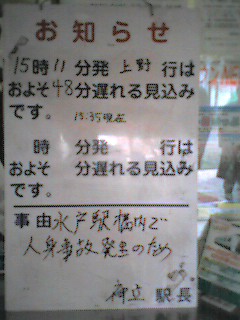 お知らせ
15時11分発 上野 行は
およそ48分遅れる見込み
です。 15:35現在
時 分発 行は
およそ 分遅れる見込み
です。
事由 水戸駅構内で
人身事故発生のため
駅長